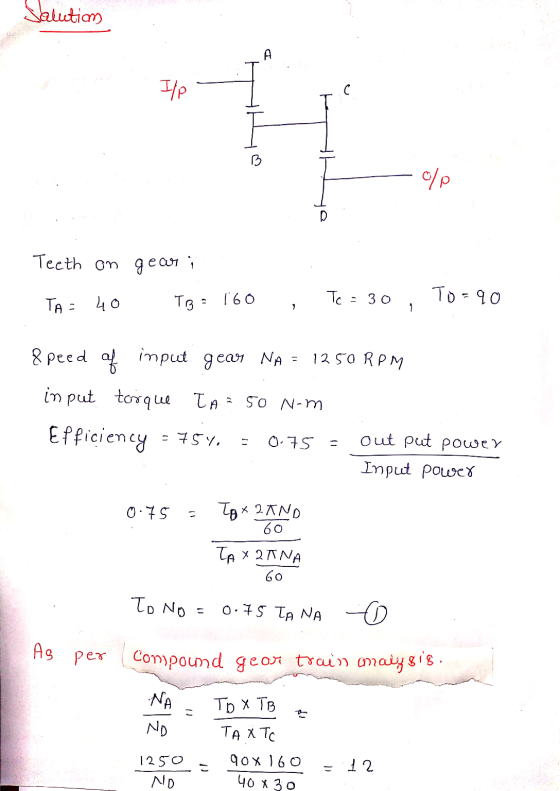 Solution
A
I/p
C
B
O/p
D
Teeth on gear ;
TA = 40 TB = 160 , TC = 30 , TD = 90
Speed of input gear NA = 1250 RPM
input torque τA = 50 N-m
Efficiency = 75% = 0.75 = out put power / Input power
0.75 = τD × 2πND / 60
τA × 2πNA / 60
τD ND = 0.75 τA NA —①
As per compound gear train analysis.
NA / ND = TD × TB / TA × TC =
1250 / ND = 90 × 160 / 40 × 30 = 12